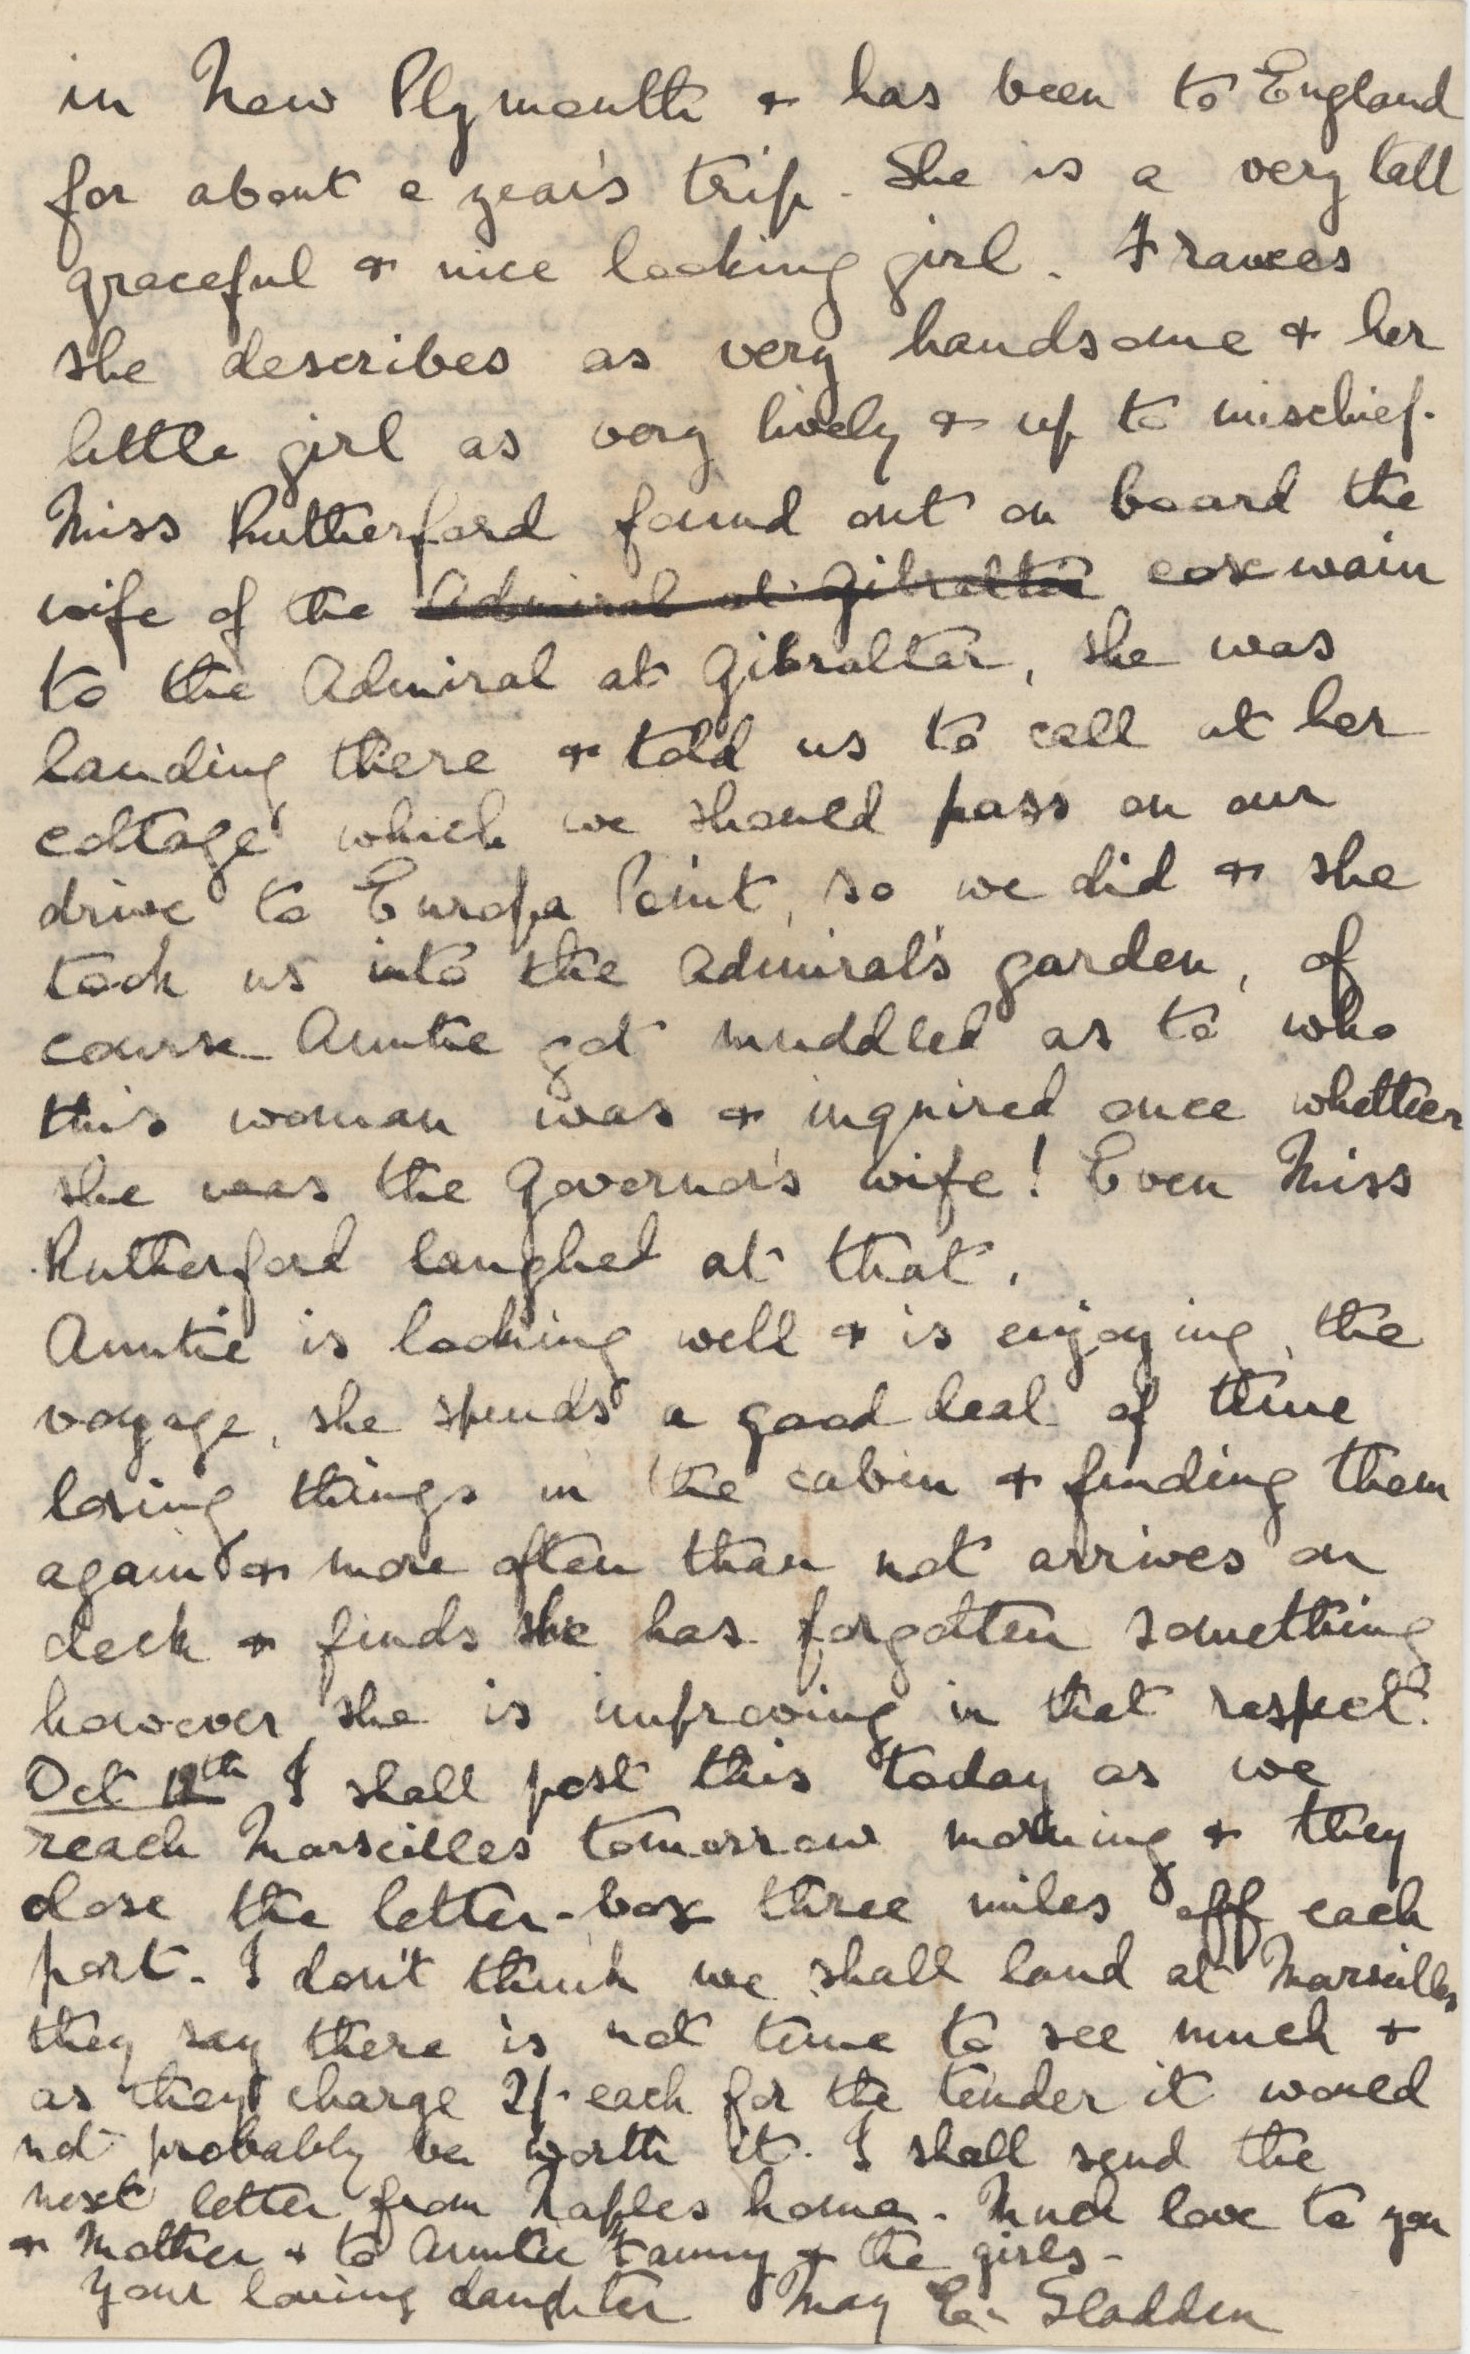 in New Plymouth & has been to England
for about a year's trip. She is a very tall
graceful & nice looking girl. Frances
she describes as very handsome & her
little girl as very lively & up to mischief.
Miss Rutherford found out on board the
wife of the Admiral at Gibraltar coxwain
to the Admiral at Gibraltar, she was
landing there & told us to call at her
cottage which we should pass on our
drive to Europa Point, so we did & she
took us into the Admiral's garden, of
course Auntie got muddled as to who
this woman was & inquired once whether
she was the Governor's wife! Even Miss
Rutherford laughed at that.
Auntie is looking well & is enjoying the
voyage, she spends a good deal of time
losing things in the cabin & finding them
again & more often than not arrives on
deck & finds she has forgotten something
however she is improving in that respect.
Oct 12th I shall post this today as we
reach Marseilles tomorrow morning & they
close the letter-box three miles off each
port. I don't think we shall land at Marseilles
they say there is not time to see much &
as they charge 2/- each for the tender it would
not probably be worth it. I shall send the
next letter from Naples home. Much love to you
& Mother & to Auntie Fanny & the girls -
Your loving daughter May E. Sladden